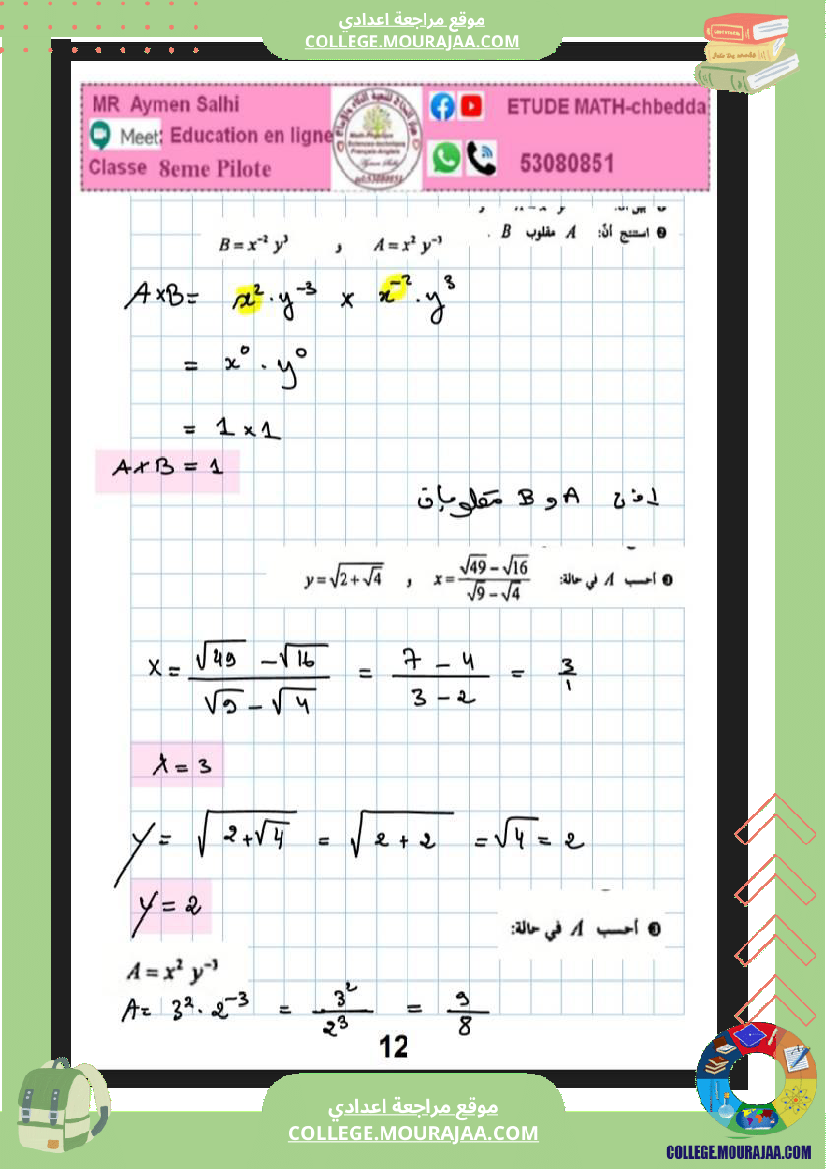 موقع مراجعة اعدادي
COLLEGE.MOURAJAA.COM
MR Aymen Salhi
Meet: Education en ligne
Classe 8eme Pilote
ETUDE MATH-chbedda
53080851
❷ استنتج أنّ: A مقلوب B .
A = x² y⁻³ و B = x⁻² y³
A×B = x² · y⁻³ × x⁻² · y³
= x⁰ · y⁰
= 1 × 1
A × B = 1
اذن A و B مقلوبان
❸ أحسب A في حالة: x = (√49 − √16)/(√9 − √4) , y = √(2+√4)
X = (√49 − √16)/(√9 − √4) = (7 − 4)/(3 − 2) = 3/1
X = 3
Y = √(2+√4) = √(2+2) = √4 = 2
Y = 2
❸ أحسب A في حالة:
A = x² y⁻³
A = 3² · 2⁻³ = 3²/2³ = 9/8
12
موقع مراجعة اعدادي
COLLEGE.MOURAJAA.COM
COLLEGE.MOURAJAA.COM